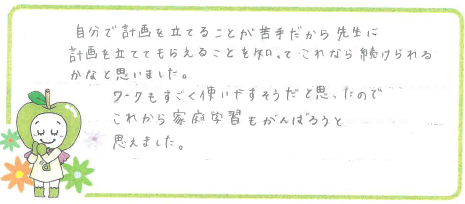 自分で計画を立てることが苦手だから先生に
計画を立ててもらえることを知って これなら続けられる
かなと思いました。
ワークもすごく使いやすそうだと思ったので
これから家庭学習もがんばろうと
思えました。